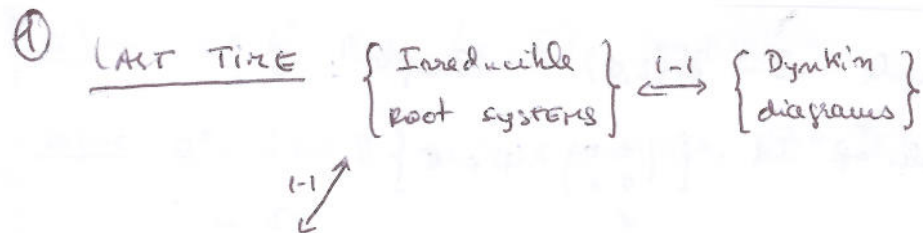 ① LAST TIME : { Irreducible Root systems } 1-1 ⟷ { Dynkin diagrams }
1-1